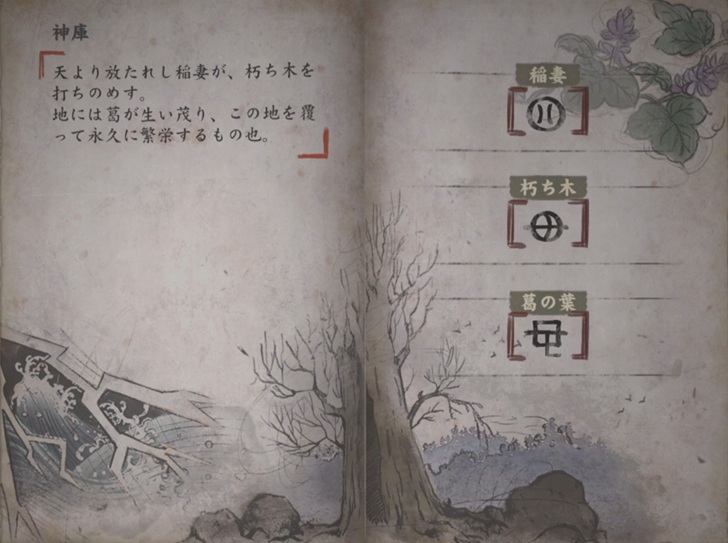 神庫
天より放たれし稲妻が、朽ち木を
打ちのめす。
地には葛が生い茂り、この地を覆
って永久に繁栄するもの也。
稲妻
朽ち木
葛の葉